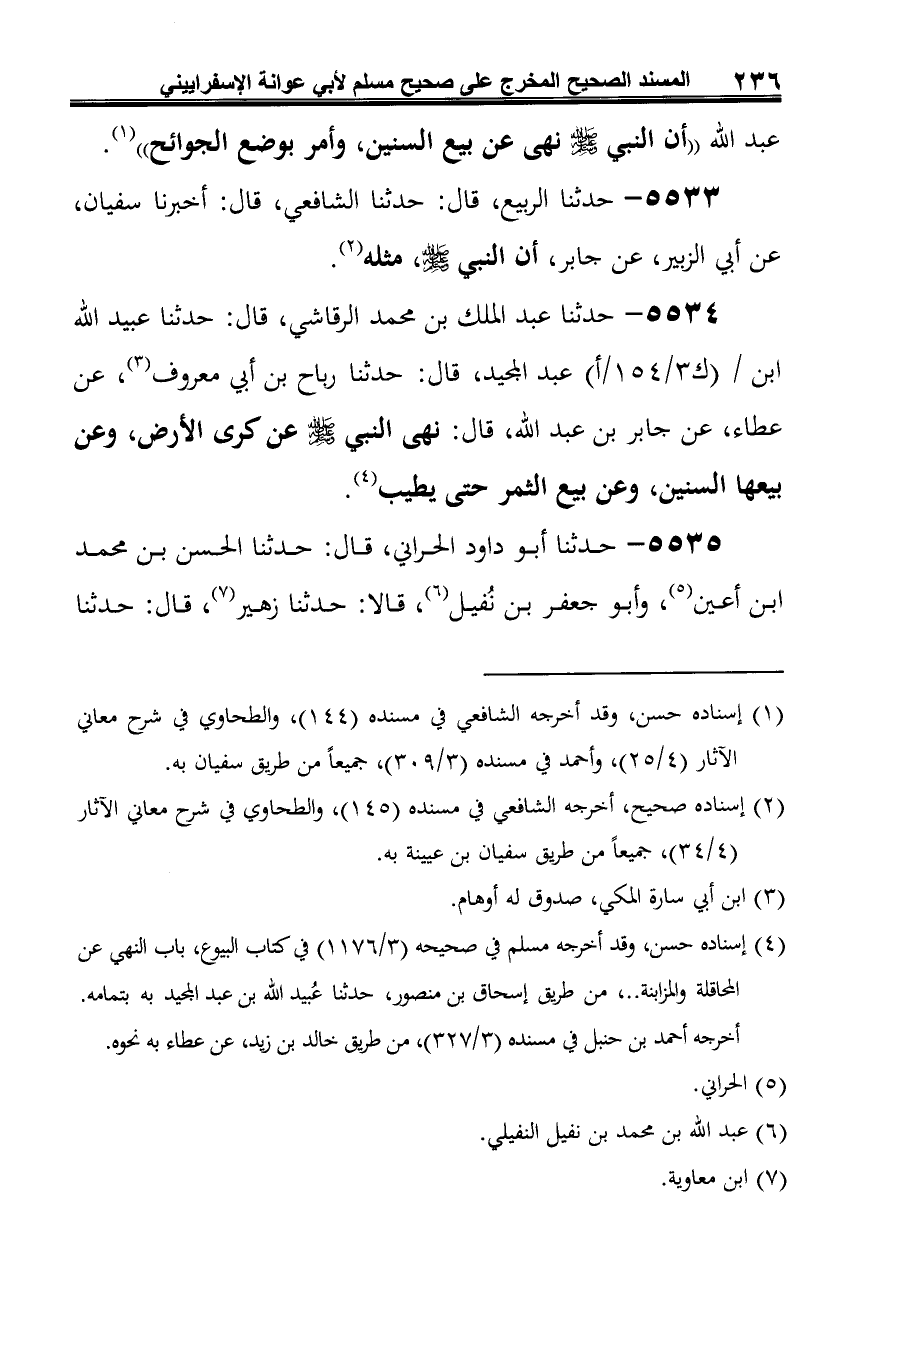 ٢٣٦ المسند الصحيح المخرج على صحيح مسلم لأبي عوانة الإسفراييني
عبد الله ((أن النبي ﷺ نهى عن بيع السنين، وأمر بوضع الجوائح))(١).
٥٥٣٣- حدثنا الربيع، قال: حدثنا الشافعي، قال: أخبرنا سفيان،
عن أبي الزبير، عن جابر، أن النبي ﷺ، مثله(٢).
٥٥٣٤- حدثنا عبد الملك بن محمد الرقاشي، قال: حدثنا عبيد الله
ابن / (ك٣/١٥٤/أ) عبد المجيد، قال: حدثنا رباح بن أبي معروف(٣)، عن
عطاء، عن جابر بن عبد الله، قال: نهى النبي ﷺ عن كرى الأرض، وعن
بيعها السنين، وعن بيع الثمر حتى يطيب(٤).
٥٥٣٥- حدثنا أبو داود الحراني، قال: حدثنا الحسن بن محمد
ابن أعين(٥)، وأبو جعفر بن نُفيل(٦)، قالا: حدثنا زهير(٧)، قال: حدثنا
(١) إسناده حسن، وقد أخرجه الشافعي في مسنده (١٤٤)، والطحاوي في شرح معاني
الآثار (٢٥/٤)، وأحمد في مسنده (٣٠٩/٣)، جميعاً من طريق سفيان به.
(٢) إسناده صحيح، أخرجه الشافعي في مسنده (١٤٥)، والطحاوي في شرح معاني الآثار
(٣٤/٤)، جميعاً من طريق سفيان بن عيينة به.
(٣) ابن أبي سارة المكي، صدوق له أوهام.
(٤) إسناده حسن، وقد أخرجه مسلم في صحيحه (١١٧٦/٣) في كتاب البيوع، باب النهي عن
المحاقلة والمزابنة..، من طريق إسحاق بن منصور، حدثنا عُبيد الله بن عبد المجيد به بتمامه.
أخرجه أحمد بن حنبل في مسنده (٣٢٧/٣)، من طريق خالد بن زيد، عن عطاء به نحوه.
(٥) الحراني.
(٦) عبد الله بن محمد بن نفيل النفيلي.
(٧) ابن معاوية.